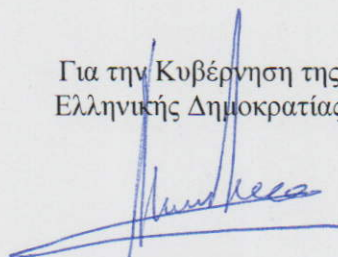 Για την Κυβέρνηση της
Ελληνικής Δημοκρατίας